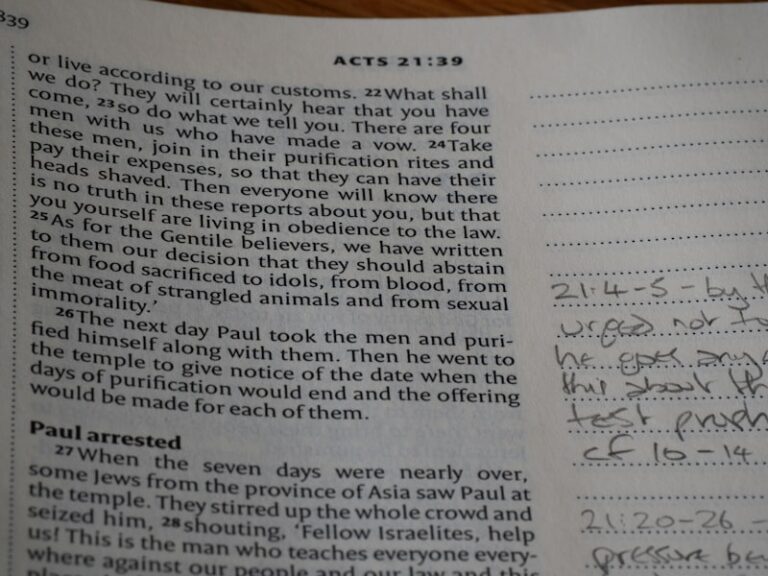 839
ACTS 21:39
or live according to our customs. 22What shall
we do? They will certainly hear that you have
come, 23so do what we tell you. There are four
men with us who have made a vow. 24Take
these men, join in their purification rites and
pay their expenses, so that they can have their
heads shaved. Then everyone will know there
is no truth in these reports about you, but that
you yourself are living in obedience to the law.
25As for the Gentile believers, we have written
to them our decision that they should abstain
from food sacrificed to idols, from blood, from
the meat of strangled animals and from sexual
immorality.’
26The next day Paul took the men and puri-
fied himself along with them. Then he went to
the temple to give notice of the date when the
days of purification would end and the offering
would be made for each of them.
Paul arrested
27When the seven days were nearly over,
some Jews from the province of Asia saw Paul at
the temple. They stirred up the whole crowd and
seized him, 28shouting, ‘Fellow Israelites, help
us! This is the man who teaches everyone every-
where against our people and our law and this
21:4-5 - by
urged not
he goes
this about
test
cf 10-14
21:20-26 -
pressure